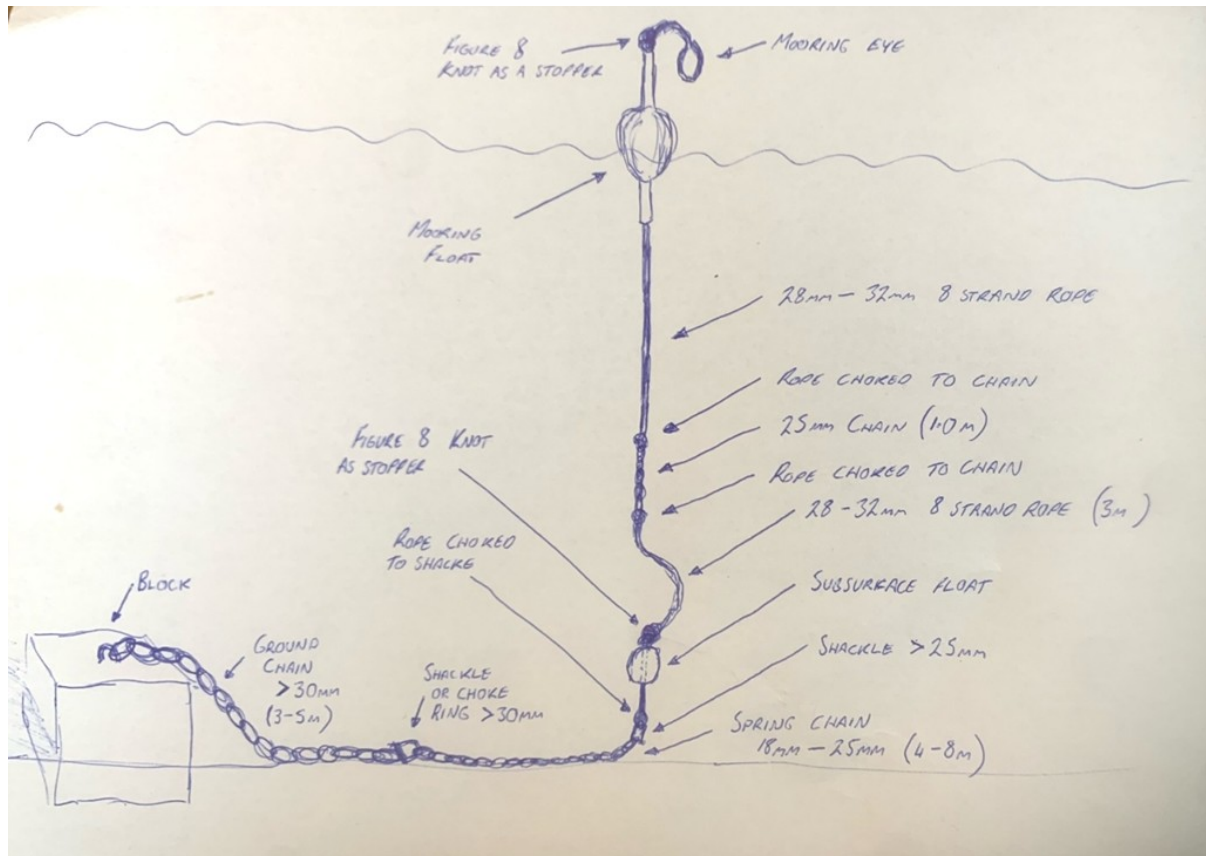 FIGURE 8
KNOT AS A STOPPER
MOORING EYE
MOORING
FLOAT
28MM - 32MM 8 STRAND ROPE
ROPE CHOKED TO CHAIN
25MM CHAIN (1.0M)
ROPE CHOKED TO CHAIN
28 - 32MM 8 STRAND ROPE (3M)
FIGURE 8 KNOT
AS STOPPER
ROPE CHOKED
TO SHACKE
SUBSURFACE FLOAT
SHACKLE >25MM
SPRING CHAIN
18MM - 25MM (4-8M)
BLOCK
GROUND
CHAIN
>30MM
(3-5M)
SHACKLE
OR CHOKE
RING >30MM